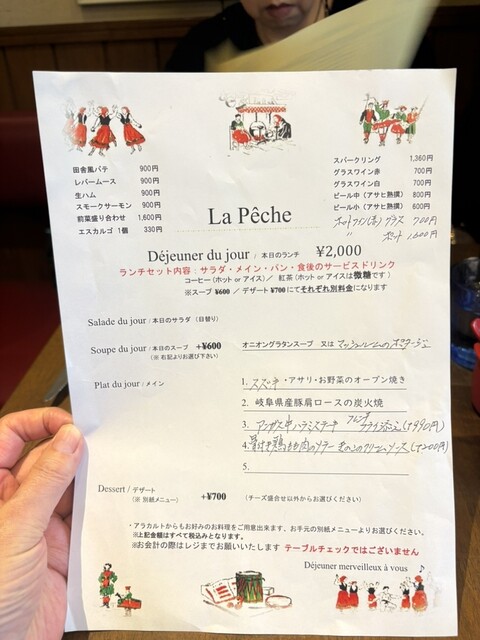 田舎風パテ 900円
レバームース 900円
生ハム 900円
スモークサーモン 900円
前菜盛り合わせ 1,600円
エスカルゴ 1個 330円
スパークリング 1,360円
グラスワイン赤 700円
グラスワイン白 700円
ビール中（アサヒ熟撰） 800円
ビール小（アサヒ熟撰） 600円
ホットワイン(赤) グラス 700円
〃 ポット 1,600円
La Pêche
Déjeuner du jour / 本日のランチ ¥2,000
ランチセット内容：サラダ・メイン・パン・食後のサービスドリンク
コーヒー（ホット or アイス）／ 紅茶（ホット or アイスは微糖です）
※スープ ¥600 ／ デザート ¥700 にてそれぞれ別料金になります
Salade du jour / 本日のサラダ（日替り）
Soupe du jour / 本日のスープ +¥600 オニオングラタンスープ 又は マッシュルームのポタージュ
（※ 右記よりお選び下さい）
Plat du jour / メイン 1. スズキ・アサリ・お野菜のオーブン焼き
2. 岐阜県産豚肩ロースの炭火焼
3. アンガス牛ハラミステーキ フレンチフライ添え(+990円)
4. 骨付き鶏もも肉のソテー きのこのクリームソース(+200円)
5.
Dessert / デザート
（※ 別紙メニュー） +¥700 （チーズ盛合せ以外からお選びください）
・アラカルトからもお好みのお料理をご用意出来ます。お手元の別紙メニューよりお選びください。
※上記金額はすべて税込みとなります。
※お会計の際はレジまでお願いいたします テーブルチェックではございません
Déjeuner merveilleux à vous ♪